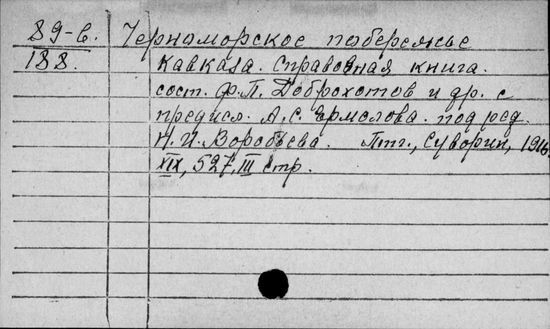 89-в. Черноморское побережье
188. Кавказа. Справочная книга.
сост. Ф.П. Доброхотов и др. с
предисл. А.С. Ермолова. под ред.
Н.И. Воробьева. Птг., Суворин, 1916,
XIX, 527, III стр.